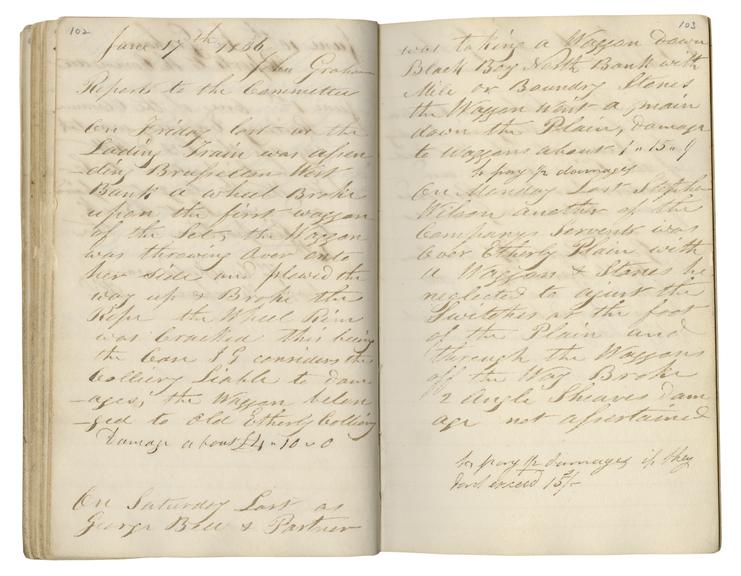 102
June 17th 1836
John Graham
Reports to the Committee
On Friday last as the
Lading Train was assen
-ding Brusselon West
Bank a wheel Broke
upon the first waggon
of the Set, the Waggon
was throwing over onto
her side and plowed the
way up & Broke the
Rope the Wheel Rim
was Cracked this being
the Case J G considers the
Colliery Liable to dam
-ages; the Waggon belon
-ged to Old Etherly Colliery
Damage about £4 " 10 " 0
On Saturday Last as
George Bell & Partner
103
was taking a Waggon down
Black Boy North Bank with
Mile or Boundry Stones
the Waggon went a main
down the Plain, damage
to Waggons about 1 " 15 " 9
to pay for damages
On Monday Last Stephn
Wilson another of the
Companys Servents was
Over Etherly Plain with
a Waggon & Stones he
neglected to ajust the
Switches at the foot
of the Plain and
through the Waggons
off the Way Broke
2 Angle Sheaves Dam
age not assertained
to pay for damages if they
dont exceed 15/-